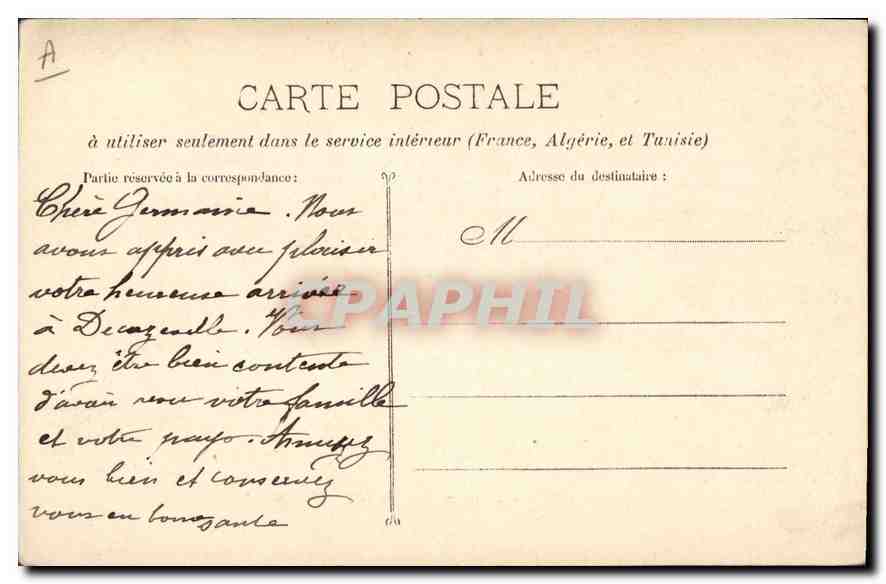 A
CARTE POSTALE
à utiliser seulement dans le service intérieur (France, Algérie, et Tunisie)
Partie réservée à la correspondance :
Chère Germaine. Nous
avons appris avec plaisir
votre heureuse arrivée
à Decazeville. Vous
devez être bien contente
d'avoir revu votre famille
et votre pays. Amusez
vous bien et conservez
vous en bonne santé
Adresse du destinataire :
M
CPAPHIL